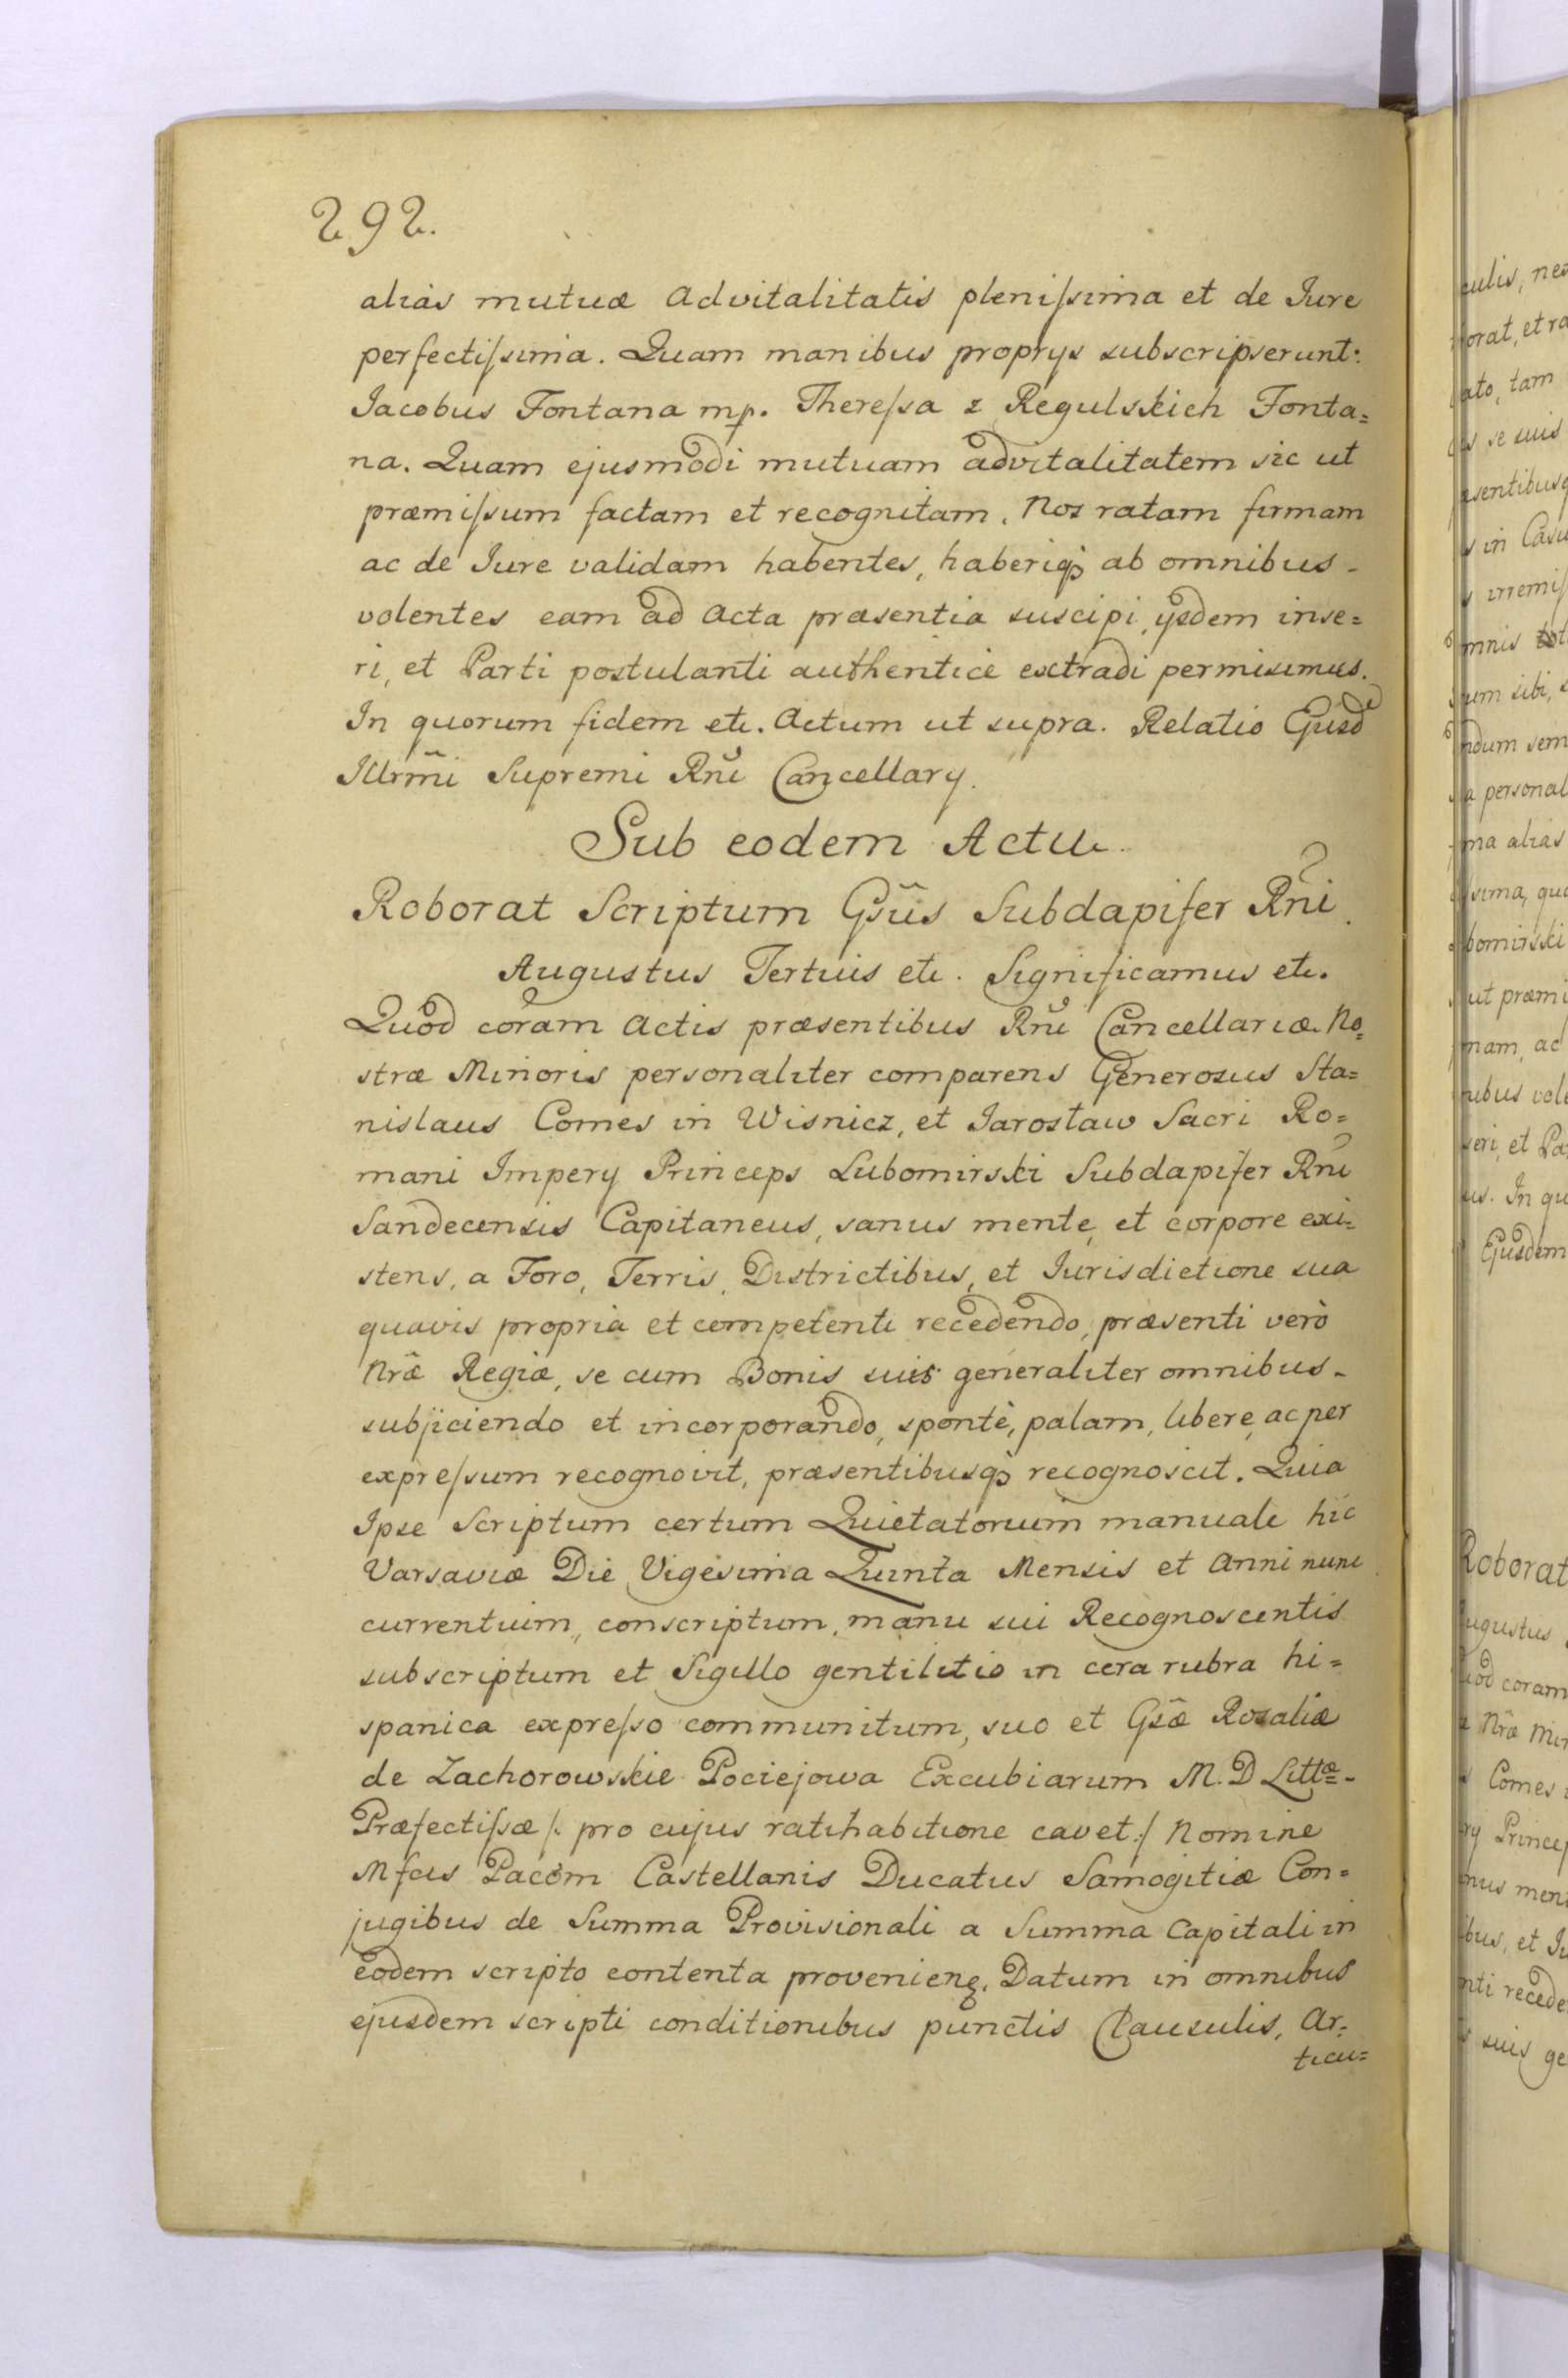 292.
aliàs mutuæ Advitalitatis pleniſsima et de Iure
perfectiſsima. Quam manibus proprys subscripserunt:
Jacobus Fontana mp. Thereſsa z Regulskich Fonta=
na. Quam ejusmodi mutuam advitalitatem sic ut
præmiſsum factam et recognitam, Nos ratam firmam
ac de Iure validam habentes, haberiqꝫ ab omnibus -
volentes eam ad Acta præsentia suscipi, ysdem inse=
ri, et Parti postulanti authenticè extradi permisimus.
In quorum fidem etc. Actum ut supra. Relatio Ejusd
Illrm̃i Supremi Rñi Cancellary.
Sub eodem Actu.
Roborat Scriptum Gs̃us Subdapifer Rñi.
Augustus Tertius etc. Significamus etc.
Quòd coram Actis præsentibus Rñi Cancellariæ No=
stræ Minoris personaliter comparens Generosus Sta=
nislaus Comes in Wisnicz, et Jarosław Sacri Ro=
mani Impery Princeps Lubomirski Subdapifer Rñi
Sandecensis Capitaneus, sanus mente, et corpore exi=
stens, a Foro, Terris, Districtibus, et Iurisdictione sua
quavis propria et competenti recedendo, præsenti verò
Nr̃æ Regiæ, se cum Bonis suis generaliter omnibus -
subjiciendo et incorporando, spontè, palam, libere, ac per
expreſsum recognovit, præsentibusqꝫ recognoscit. Quia
Ipse Scriptum certum Quietatorium manuale hic
Varsaviæ Die Vigesima Quinta Mensis et Anni nunc
currentium, conscriptum, manu sui Recognoscentis
subscriptum et Sigillo gentilitio in cera rubra hi=
spanica expreſso communitum, suo et Gs̃æ Rozaliæ
de Zachorowskie Pociejowa Excubiarum M. D Littæ -
Præfectiſsæ /: pro cujus ratihabitione cavet :/ Nomine
Mfcis Pacom Castellanis Ducatus Samogitiæ Con=
jugibus de Summa Provisionali a Summa Capitali in
eodem scripto contenta provenienꝫ. Datum in omnibus
ejusdem scripti conditionibus punctis Clausulis, Ar=
ticu=
culis, nec
orat, et ra
ato, tam
se suis
sentibusq
in Casu
irremiſ
mnis
um sibi, s
ndum sem
a personal
ma alias
sima, qua
bomirski
ut præmi
mam, ac
nibus vole
seri, et Pa
us. In qu
Ejusdem
Roborat
ugustus
uòd coram
Nr̃æ Min
Comes
ry Princep
nus men
ibus, et Iu
nti recede
suis ge